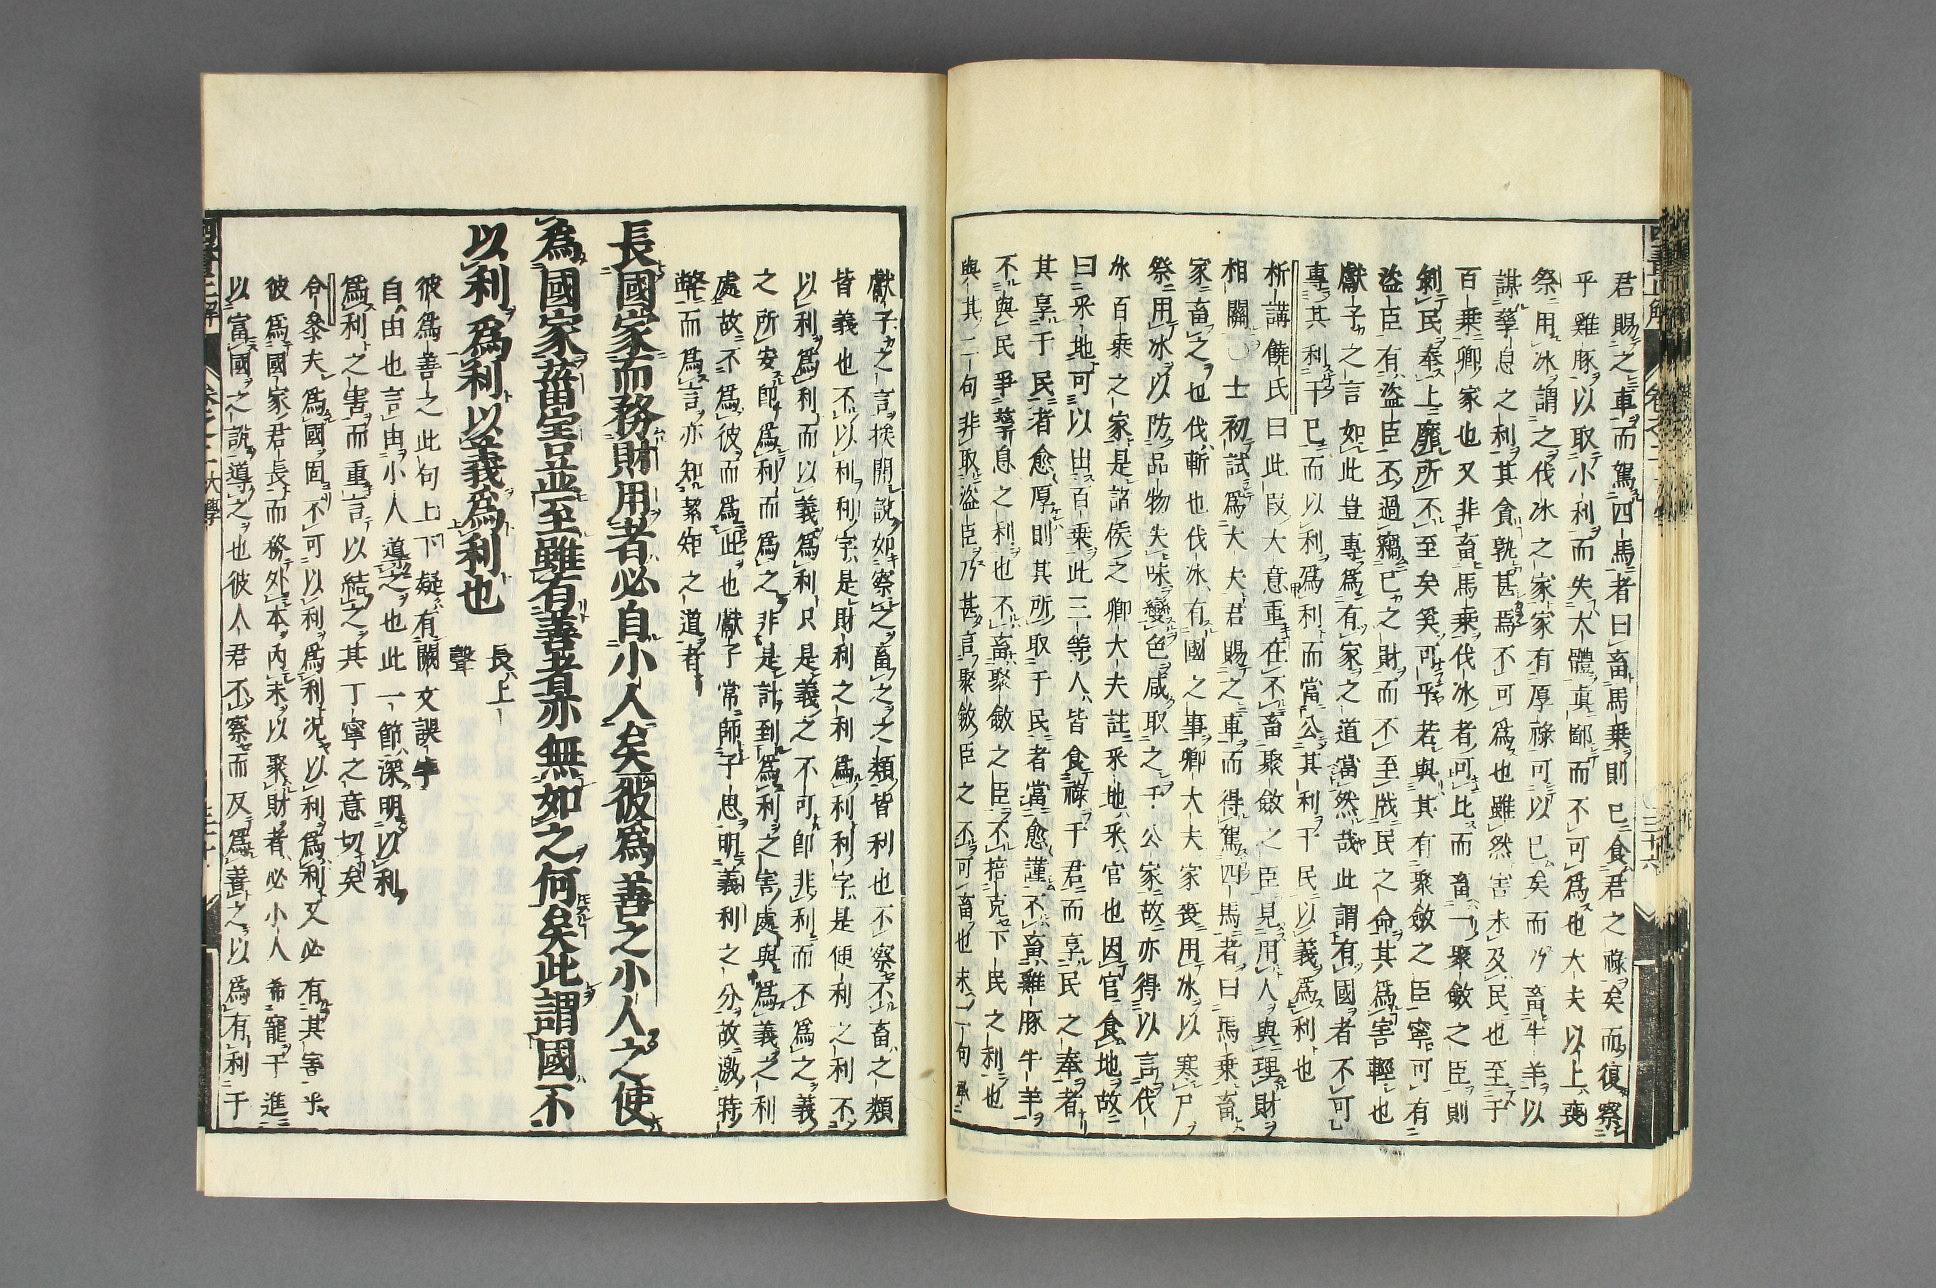 君賜之車而駕四馬者曰畜馬乗則已食君之祿矣而復察
乎雞豚以取小利而失大體眞鄙而不可為也大夫以上喪
祭用冰謂之伐冰之家家有厚祿可以已矣而乃畜牛羊以
謀孳息之利其食孰甚焉不可為也雖然害未及民也至于
百乗卿家也又非畜馬乗伐冰者可比而畜一聚斂之臣則
剝民奉上靡所不至矣奚可乎若與其有聚斂之臣寧可有
盜臣有盜臣不過竊已之財而不至戕民之命其為害輕也
獻子之言如此豈專為有家之道當然哉此謂有國者不可
專其利于已而以利爲利而當公其利于民以義爲利也
析講饒氏曰此段大意重在不畜聚斂之臣見用人與理財
相關〇士初試爲大夫君賜之車而得駕四馬者曰馬乗畜
家畜之也伐斬也伐冰有國之事卿大夫家喪用冰以寒尸
祭用冰以防品物失味變色咸取之于公家故亦得以言伐
冰百乗之家是諸侯之卿大夫註采地采官也因官食地故
曰采地可以出百乗此三等人皆食祿于君而享民之奉者
其享于民者愈厚則其所取于民者當愈謹不畜雞豚牛羊
不與民爭孳息之利也不畜聚斂之臣不掊克下民之利也
與其二句非取盜臣乃甚言聚斂臣之不可畜也末二句承
獻子之言推開說如察之畜之之類皆利也不察不畜之類
皆義也不以利利字是財利之利爲利利字是便利之利不
以利爲利而以義爲利只是義之不可即非利而不爲之義
之所安即爲利而爲之非是計到爲利之害處與爲義之利
處故不爲彼而爲此也獻子常師子思明義利之分故激時
弊而爲言亦知絜矩之道者
長國家而務財用者必自小人矣彼爲善之小人之使
為國家菑害並至雖有善者亦無如之何矣此謂國不
以利爲利以義爲利也
長上
聲
彼爲善之此句上下疑有闕文誤字
自由也言由小人導之也此一節深明以利
爲利之害而重言以結之其丁寧之意切矣
合糸夫爲國固不可以利爲利况以利爲利又必有其害乎
彼爲國家君長而務外本內末以聚財者必小人希寵干進
以富國之說導之也彼人君不察而反爲善之以爲有利于